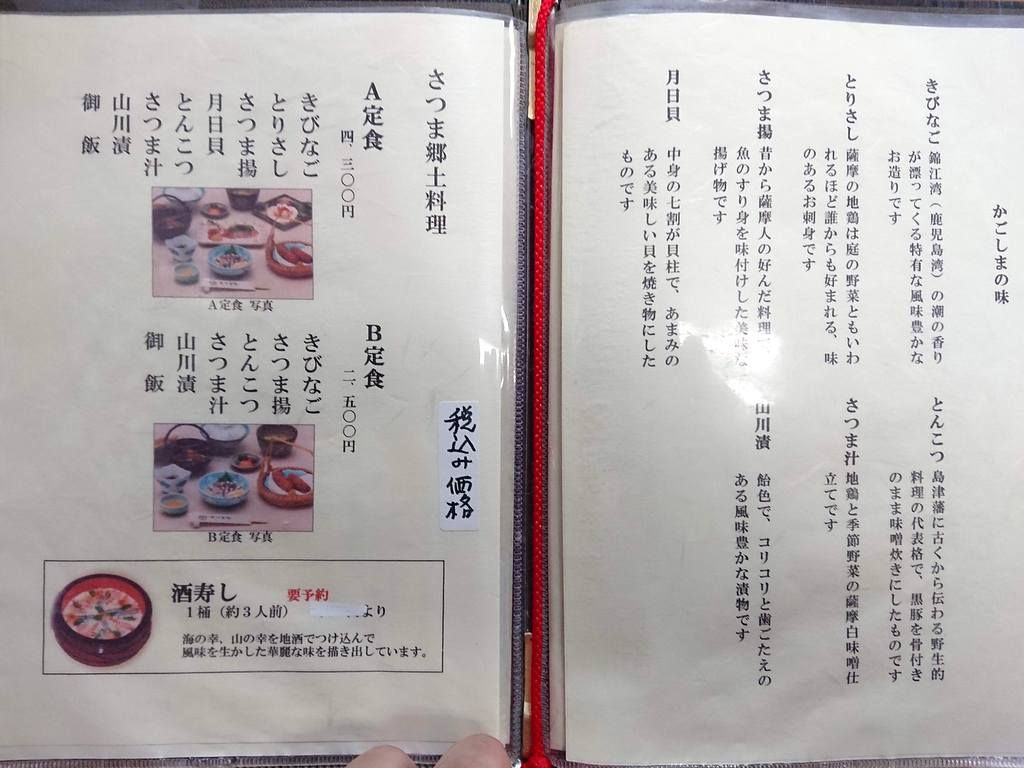 かごしまの味
きびなご
錦江湾（鹿児島湾）の潮の香り
が漂ってくる特有な風味豊かな
お造りです
とりさし
薩摩の地鶏は庭の野菜ともいわ
れるほど誰からも好まれる、味
のあるお刺身です
さつま揚
昔から薩摩人の好んだ料理
魚のすり身を味付けした美味
揚げ物です
月日貝
中身の七割が貝柱で、あまみの
ある美味しい貝を焼き物にした
ものです
とんこつ
島津藩に古くから伝わる野生的
料理の代表格で、黒豚を骨付き
のまま味噌炊きにしたものです
さつま汁
地鶏と季節野菜の薩摩白味噌仕
立てです
山川漬
飴色で、コリコリと歯ごたえの
ある風味豊かな漬物です
さつま郷土料理
A定食
四、三〇〇円
きびなご
とりさし
さつま揚
月日貝
とんこつ
さつま汁
山川漬
御飯
A定食 写真
B定食
二、五〇〇円
きびなご
さつま揚
とんこつ
さつま汁
山川漬
御飯
B定食 写真
税込み価格
酒寿し 要予約
1桶（約3人前） より
海の幸、山の幸を地酒でつけ込んで
風味を生かした華麗な味を描き出しています。